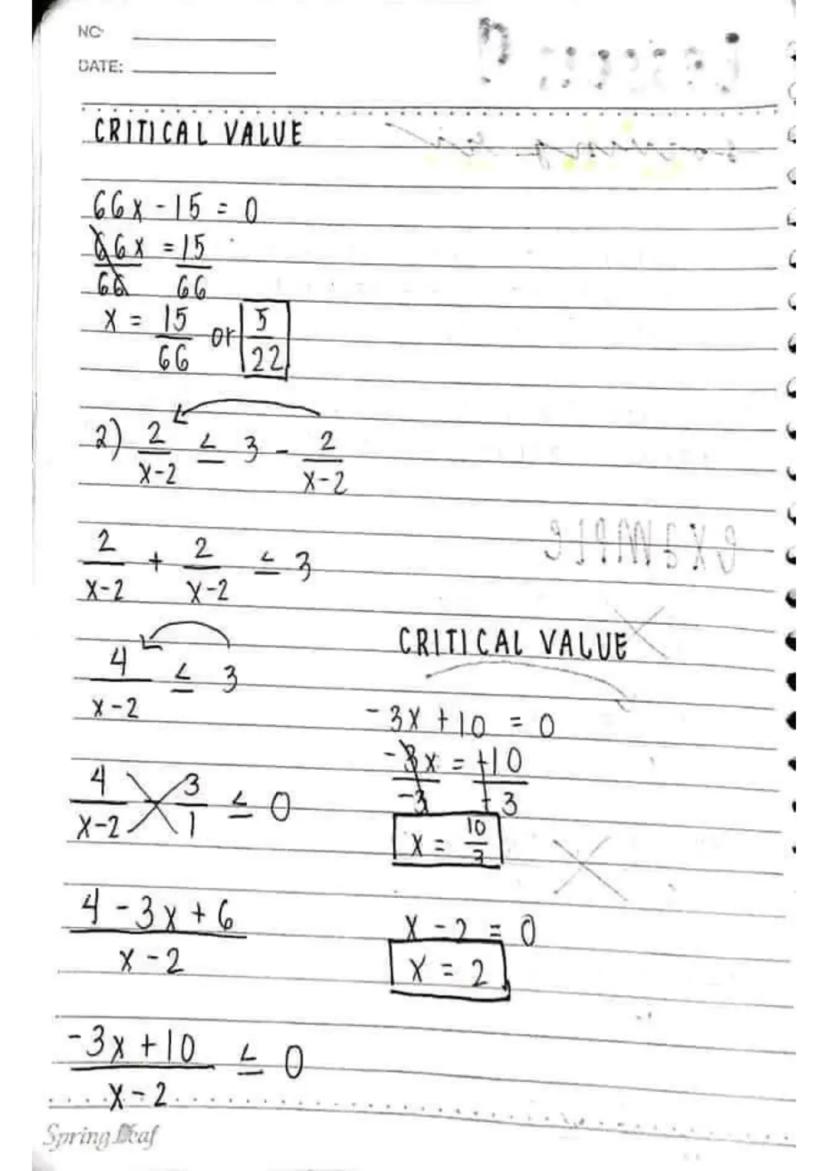 NO
DATE:
CRITICAL VALUE
66x - 15 = 0
66x = 15
66 66
x = 15/66 or 5/22
2) 2/x-2 ≤ 3 - 2/x-2
2/x-2 + 2/x-2 ≤ 3
4/x-2 ≤ 3
4/x-2 3/1 ≤ 0
4 - 3x + 6
x - 2
-3x + 10 ≤ 0
x - 2
CRITICAL VALUE
-3x + 10 = 0
-3x = -10
-3 -3
x = 10/3
x - 2 = 0
x = 2
EXAMPLE
Spring Leaf